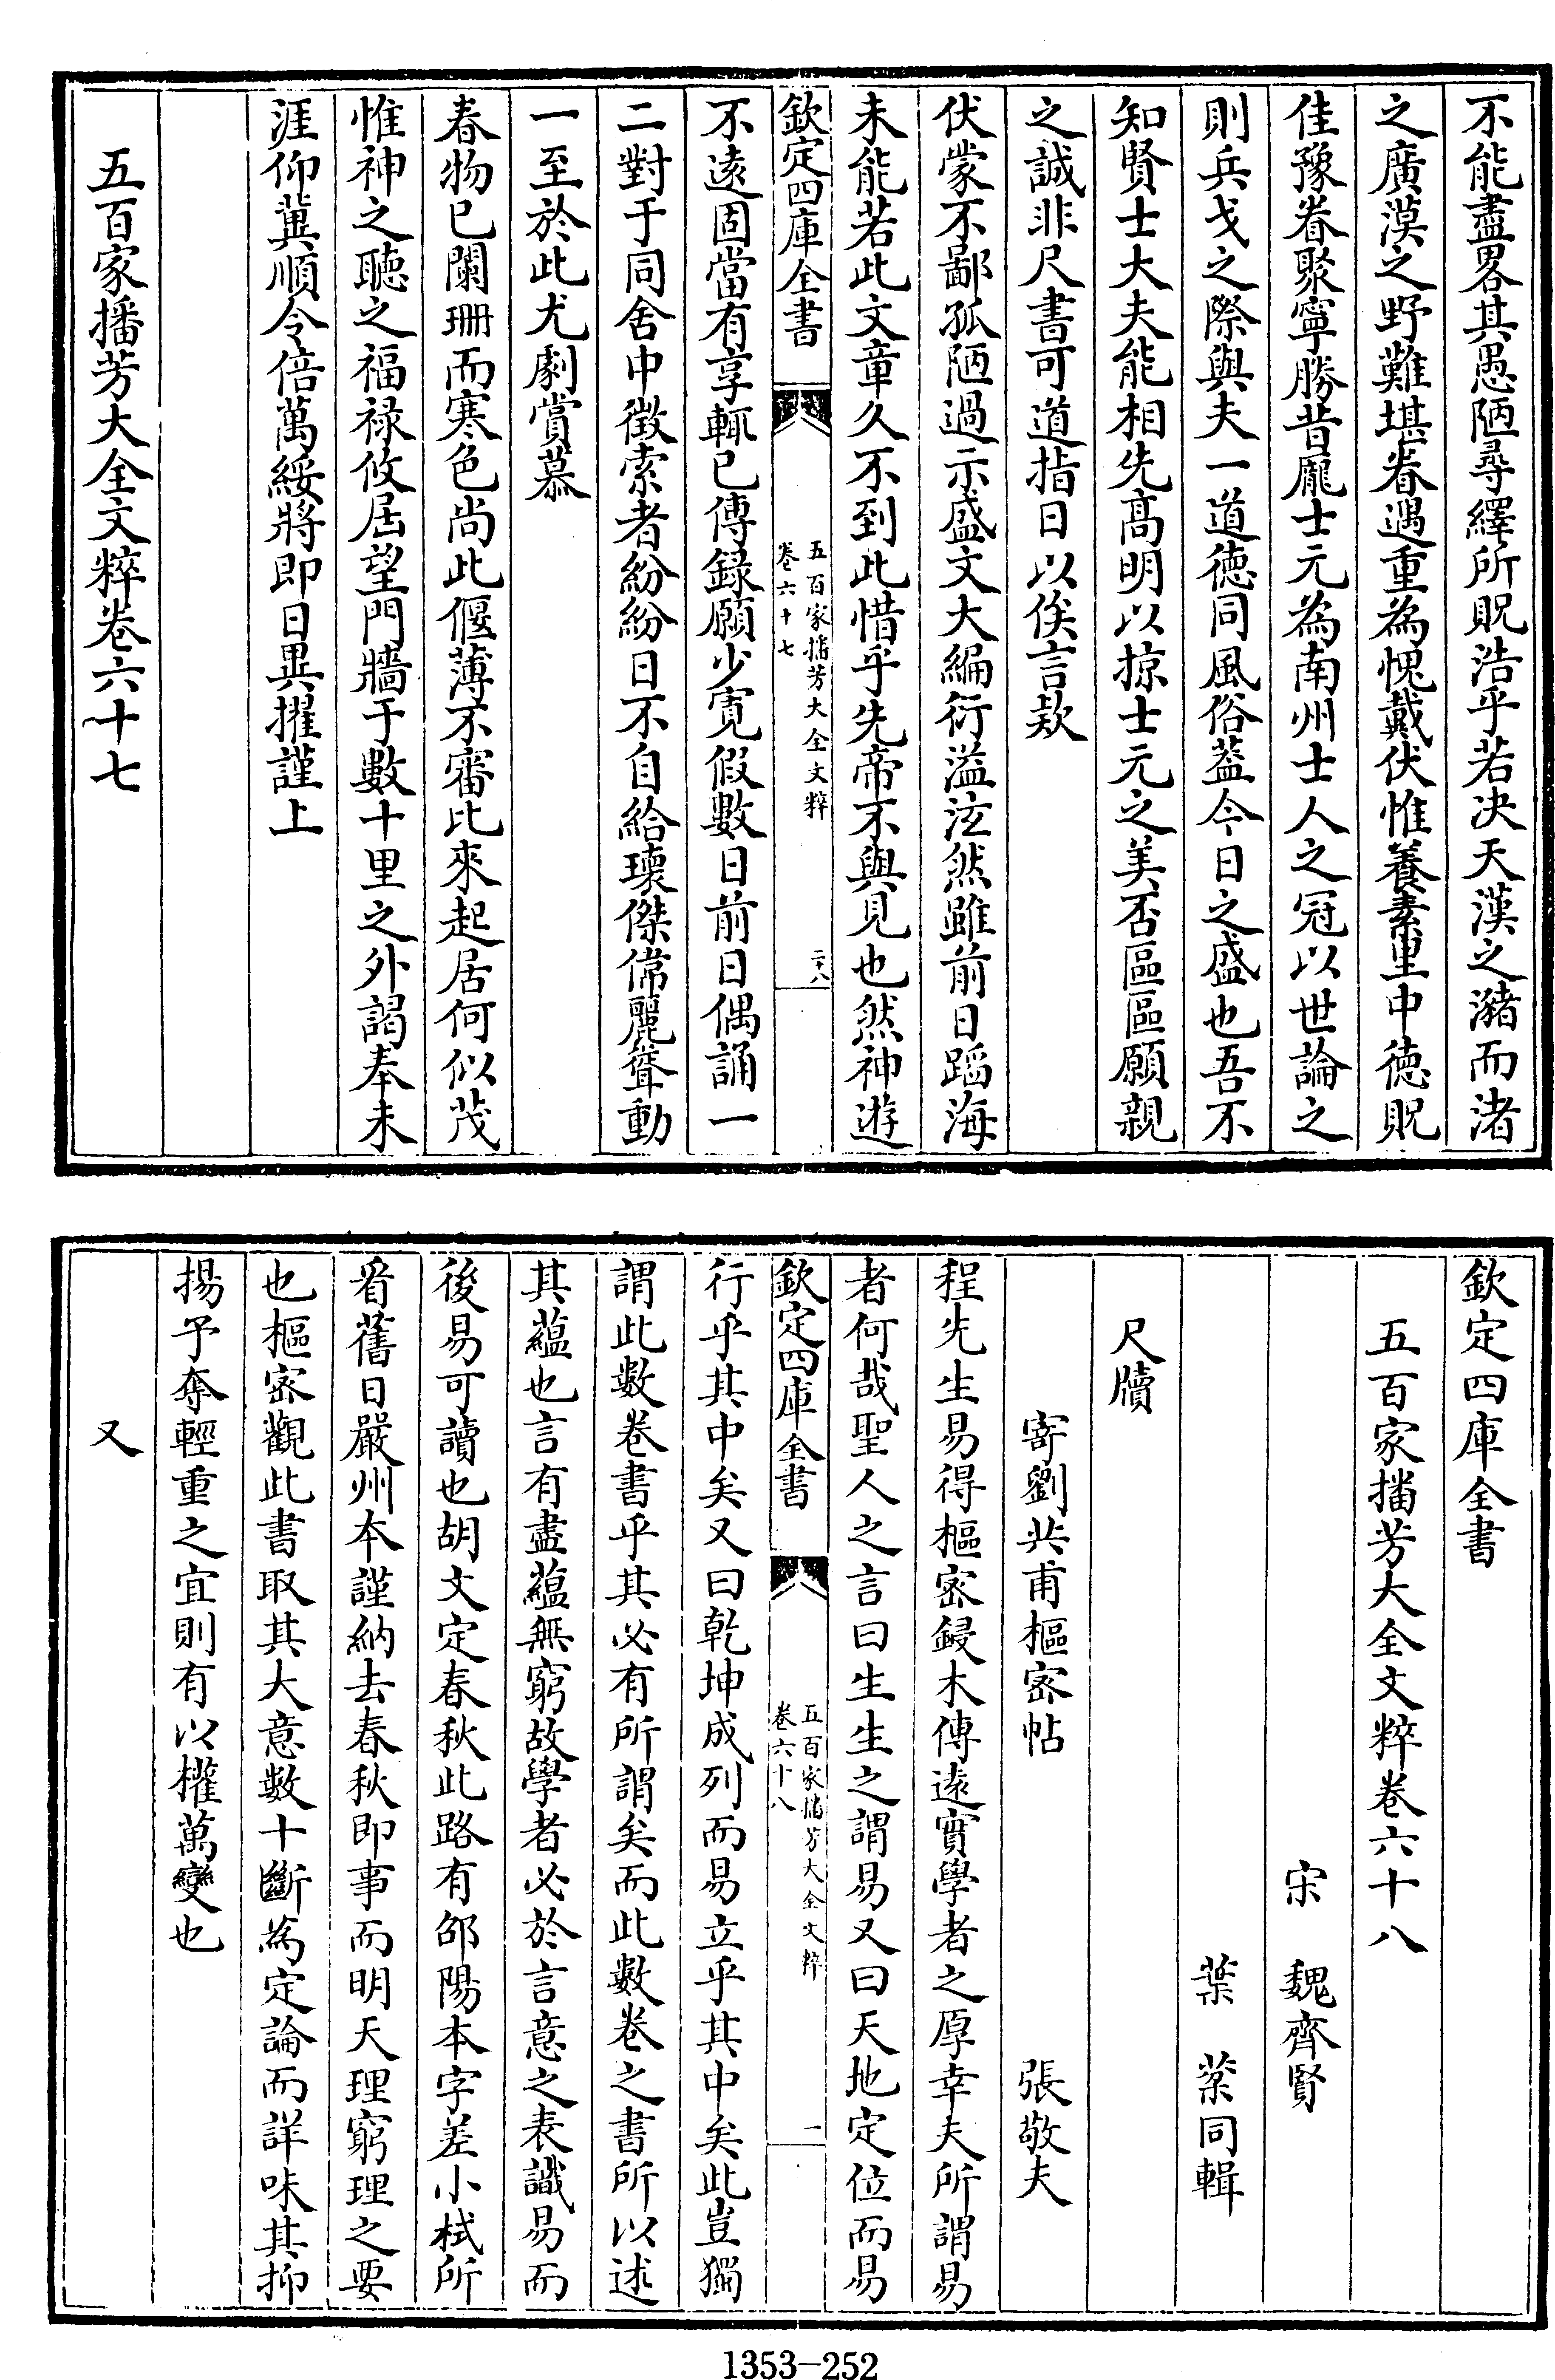 不能盡畧其愚陋尋繹所貺浩乎若决天漢之瀦而渚
之廣漠之野難堪眷遇重為愧戴伏惟養素里中德貺
佳豫眷聚寧勝昔龐士元為南州士人之冠以世論之
則兵戈之際與夫一道徳同風俗葢今日之盛也吾不
知賢士大夫能相先髙明以掠士元之美否區區願親
之誠非尺書可道指日以俟言欵
伏蒙不鄙孤陋過示盛文大編衍溢泫然雖前日蹈海
未能若此文章久不到此惜乎先帝不與見也然神遊
欽定四庫全書
五百家播芳大全文粹
卷六十七
二十八
不遠固當有享輒已傳録願少寛假數日前日偶誦一
二對于同舍中徴索者紛紛日不自給瓌傑偉麗聳動
一至於此尤劇賞慕
春物已闌珊而寒色尚此偃薄不審比來起居何似茂
惟神之聽之福禄攸居望門牆于數十里之外謁奉未
涯仰冀順令倍萬綏將即日異擢謹上
五百家播芳大全文粹卷六十七
欽定四庫全書
五百家播芳大全文粹卷六十八
宋 魏齊賢
葉 棻同輯
尺牘
寄劉共甫樞密帖 張敬夫
程先生易得樞密鋟木傳逺實學者之厚幸夫所謂易
者何哉聖人之言曰生生之謂易又曰天地定位而易
欽定四庫全書
五百家播芳大全文粹
卷六十八
一
行乎其中矣又曰乾坤成列而易立乎其中矣此豈獨
謂此數卷書乎其必有所謂矣而此數卷之書所以述
其藴也言有盡藴無窮故學者必於言意之表識易而
後易可讀也胡文定春秋此路有邵陽本字差小栻所
看舊日嚴州本謹納去春秋即事而明天理窮理之要
也樞密觀此書取其大意數十斷為定論而詳味其抑
揚予奪輕重之宜則有以權萬變也
又
1353-252